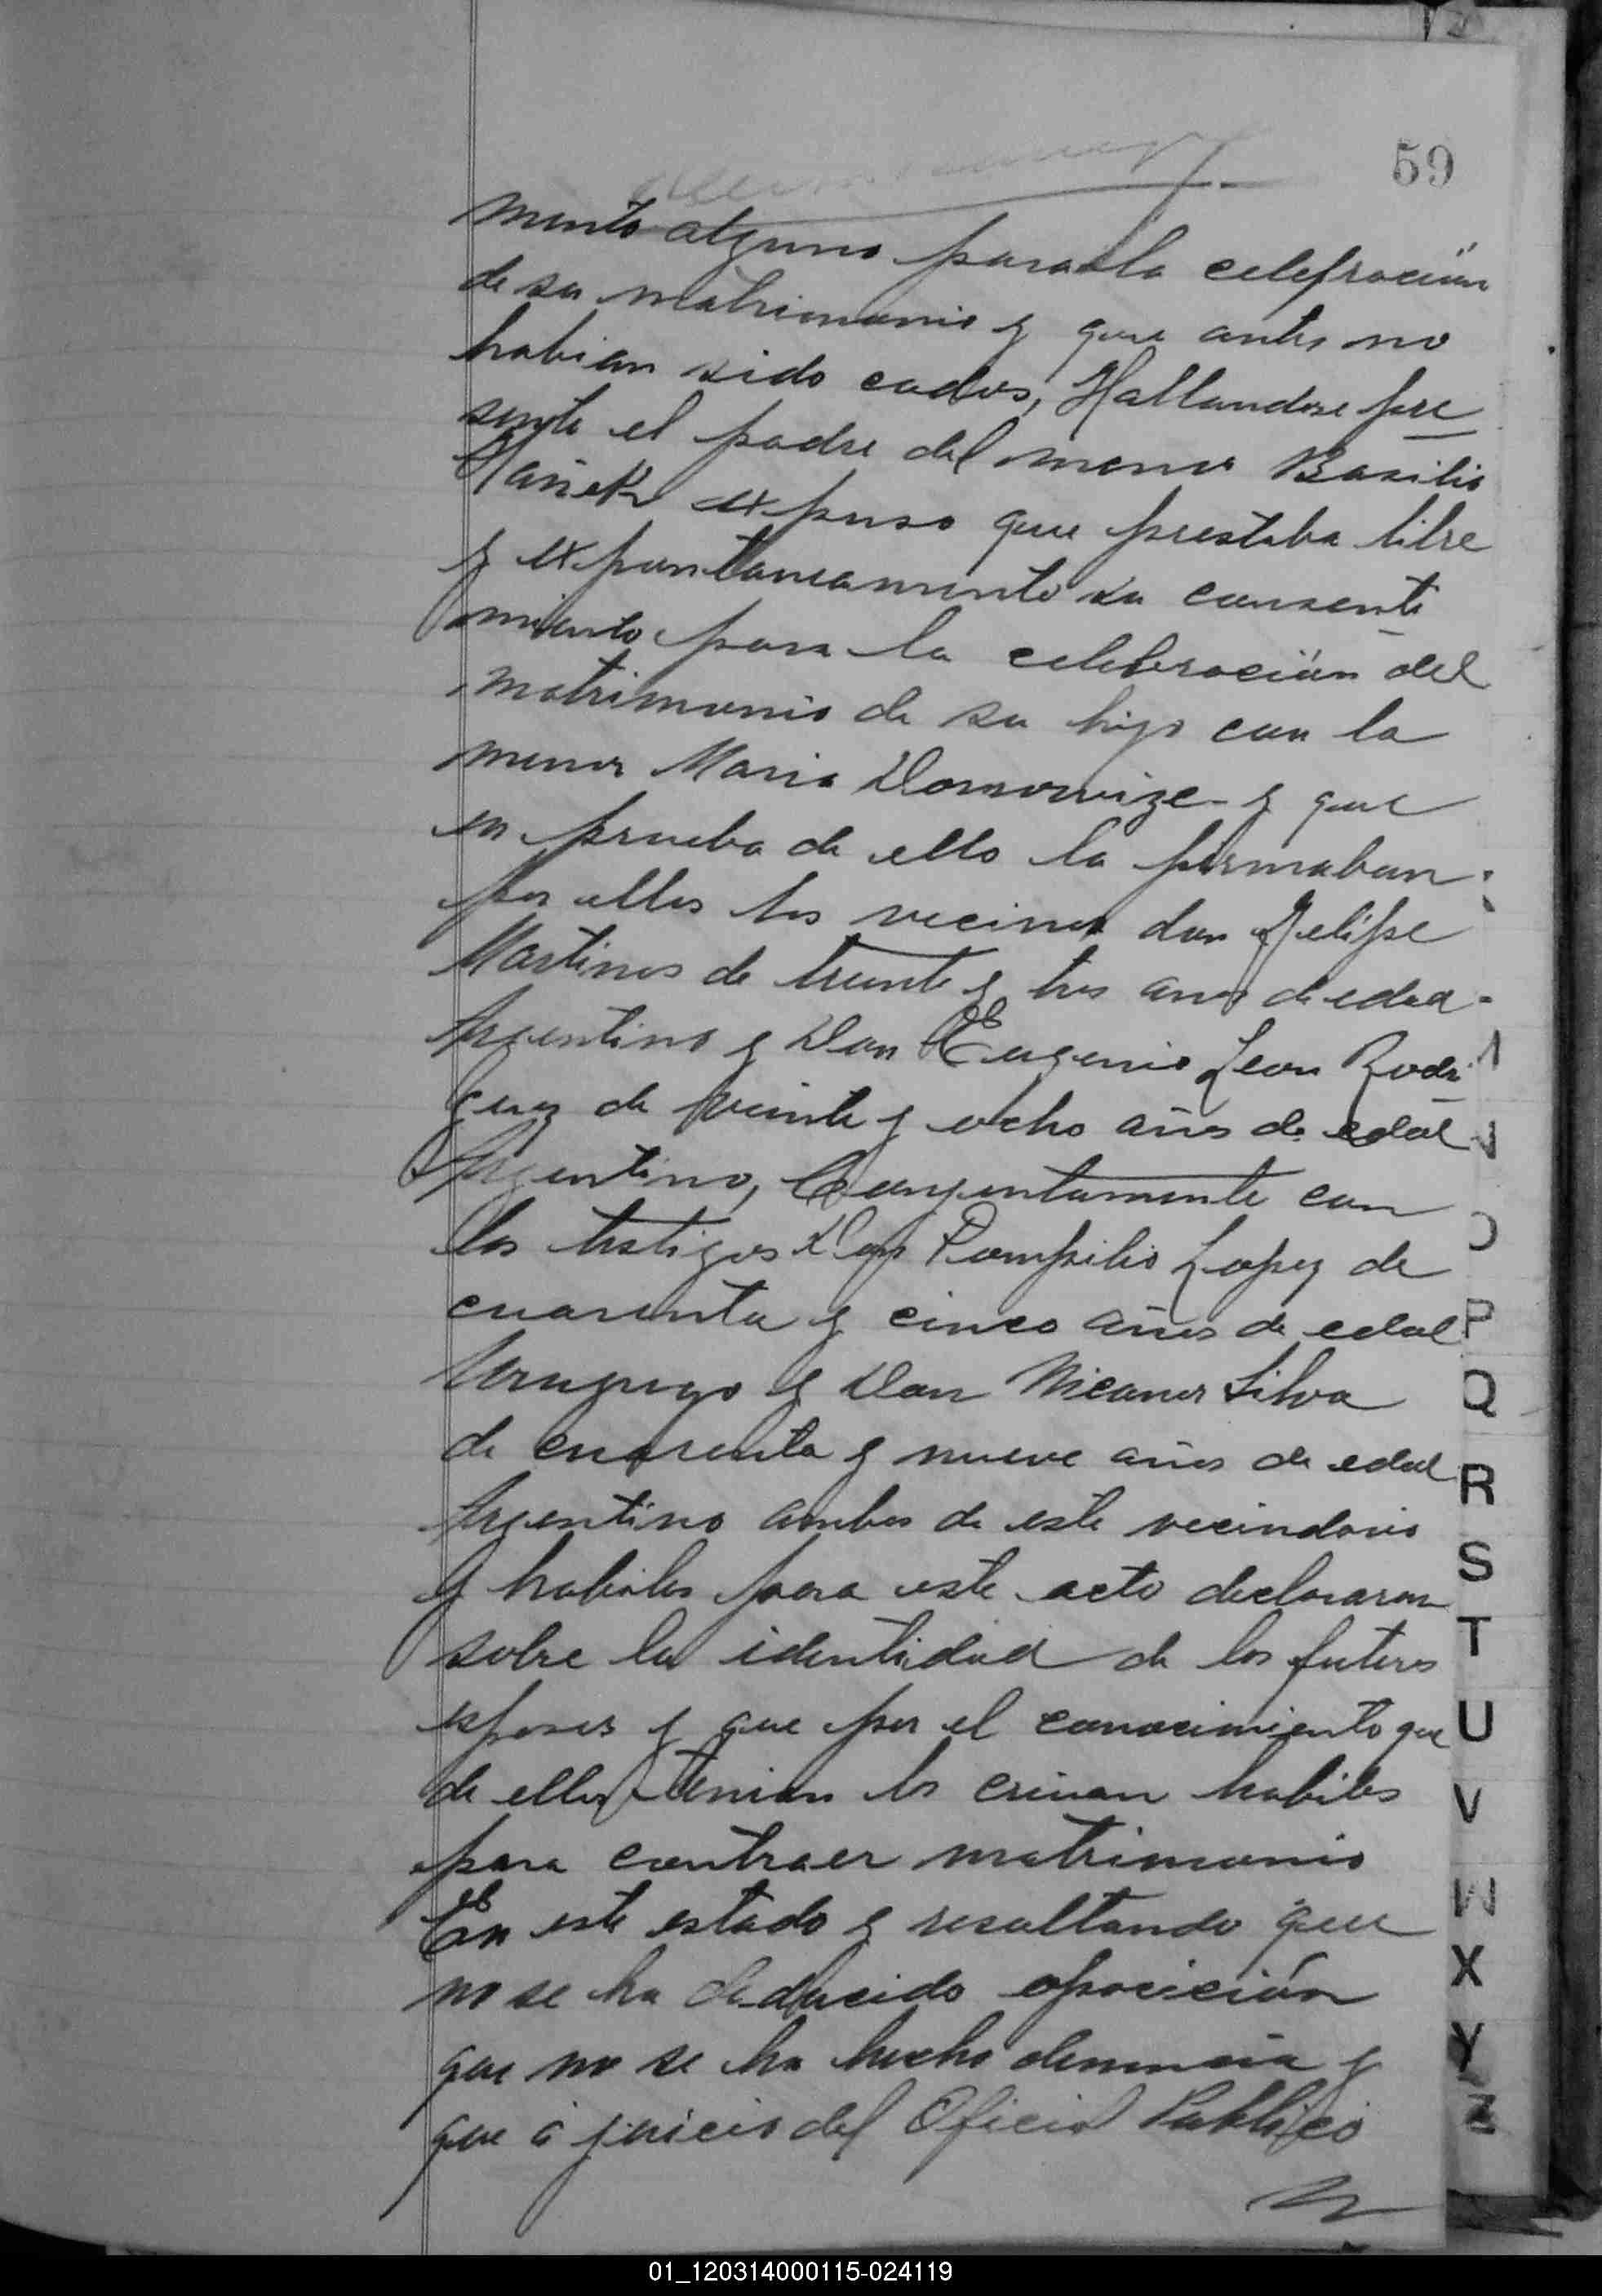 59
mento alguno para la celebración
de su matrimonio y que antes no
habian sido cadvs, Hallandose pre
sente el padre del menor Basilio
expuso que prestaba libre
y expontaneamente su consenti
miento para la celebración del
matrimonio de su hijo con la
menor Maria y que
en prueba de ello la firmaban
por ellos los vecinos don Felipe
Martines de treinta y tres años de edad
Argentino y Don Eugenio Leon Rodri
guez de veinte y ocho años de edad
Argentino, Conjuntamente con
los testigos Don Pompilio Lopez de
cuarenta y cinco años de edad
Uruguayo y Don Nicanor Silva
de cuarenta y nueve años de edad
Argentino ambos de este vecindario
y habiles para este acto declararon
sobre la identidad de los futuros
esposos y que por el conocimiento que
de ellos tenian los creian habiles
para contraer matrimonio
En este estado y resultando que
no se ha deducido oposición
que no se ha hecho denuncia y
que á juicio del Oficial Publico
P
Q
R
S
T
U
V
W
X
Y
Z
01_120314000115-024119